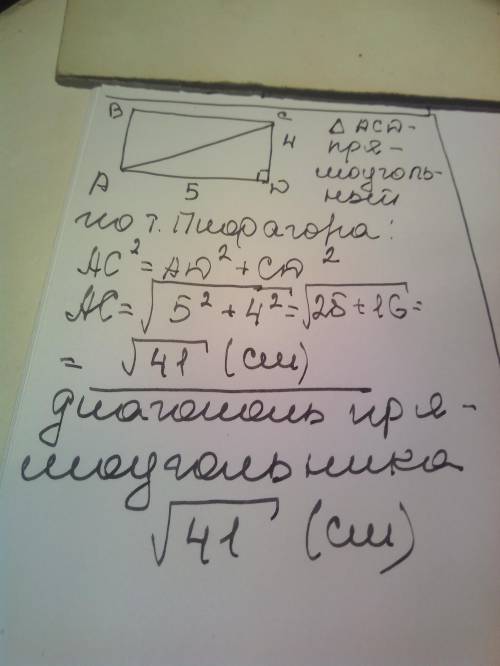 B C
4
A 5 D
Δ ACD -
пря -
моуголь-
ный
по т. Пифагора:
AC² = AD² + CD²
AC = √5² + 4² = √25 + 16 =
= √41 (см)
диагональ пря -
моугольника
√41 (см)